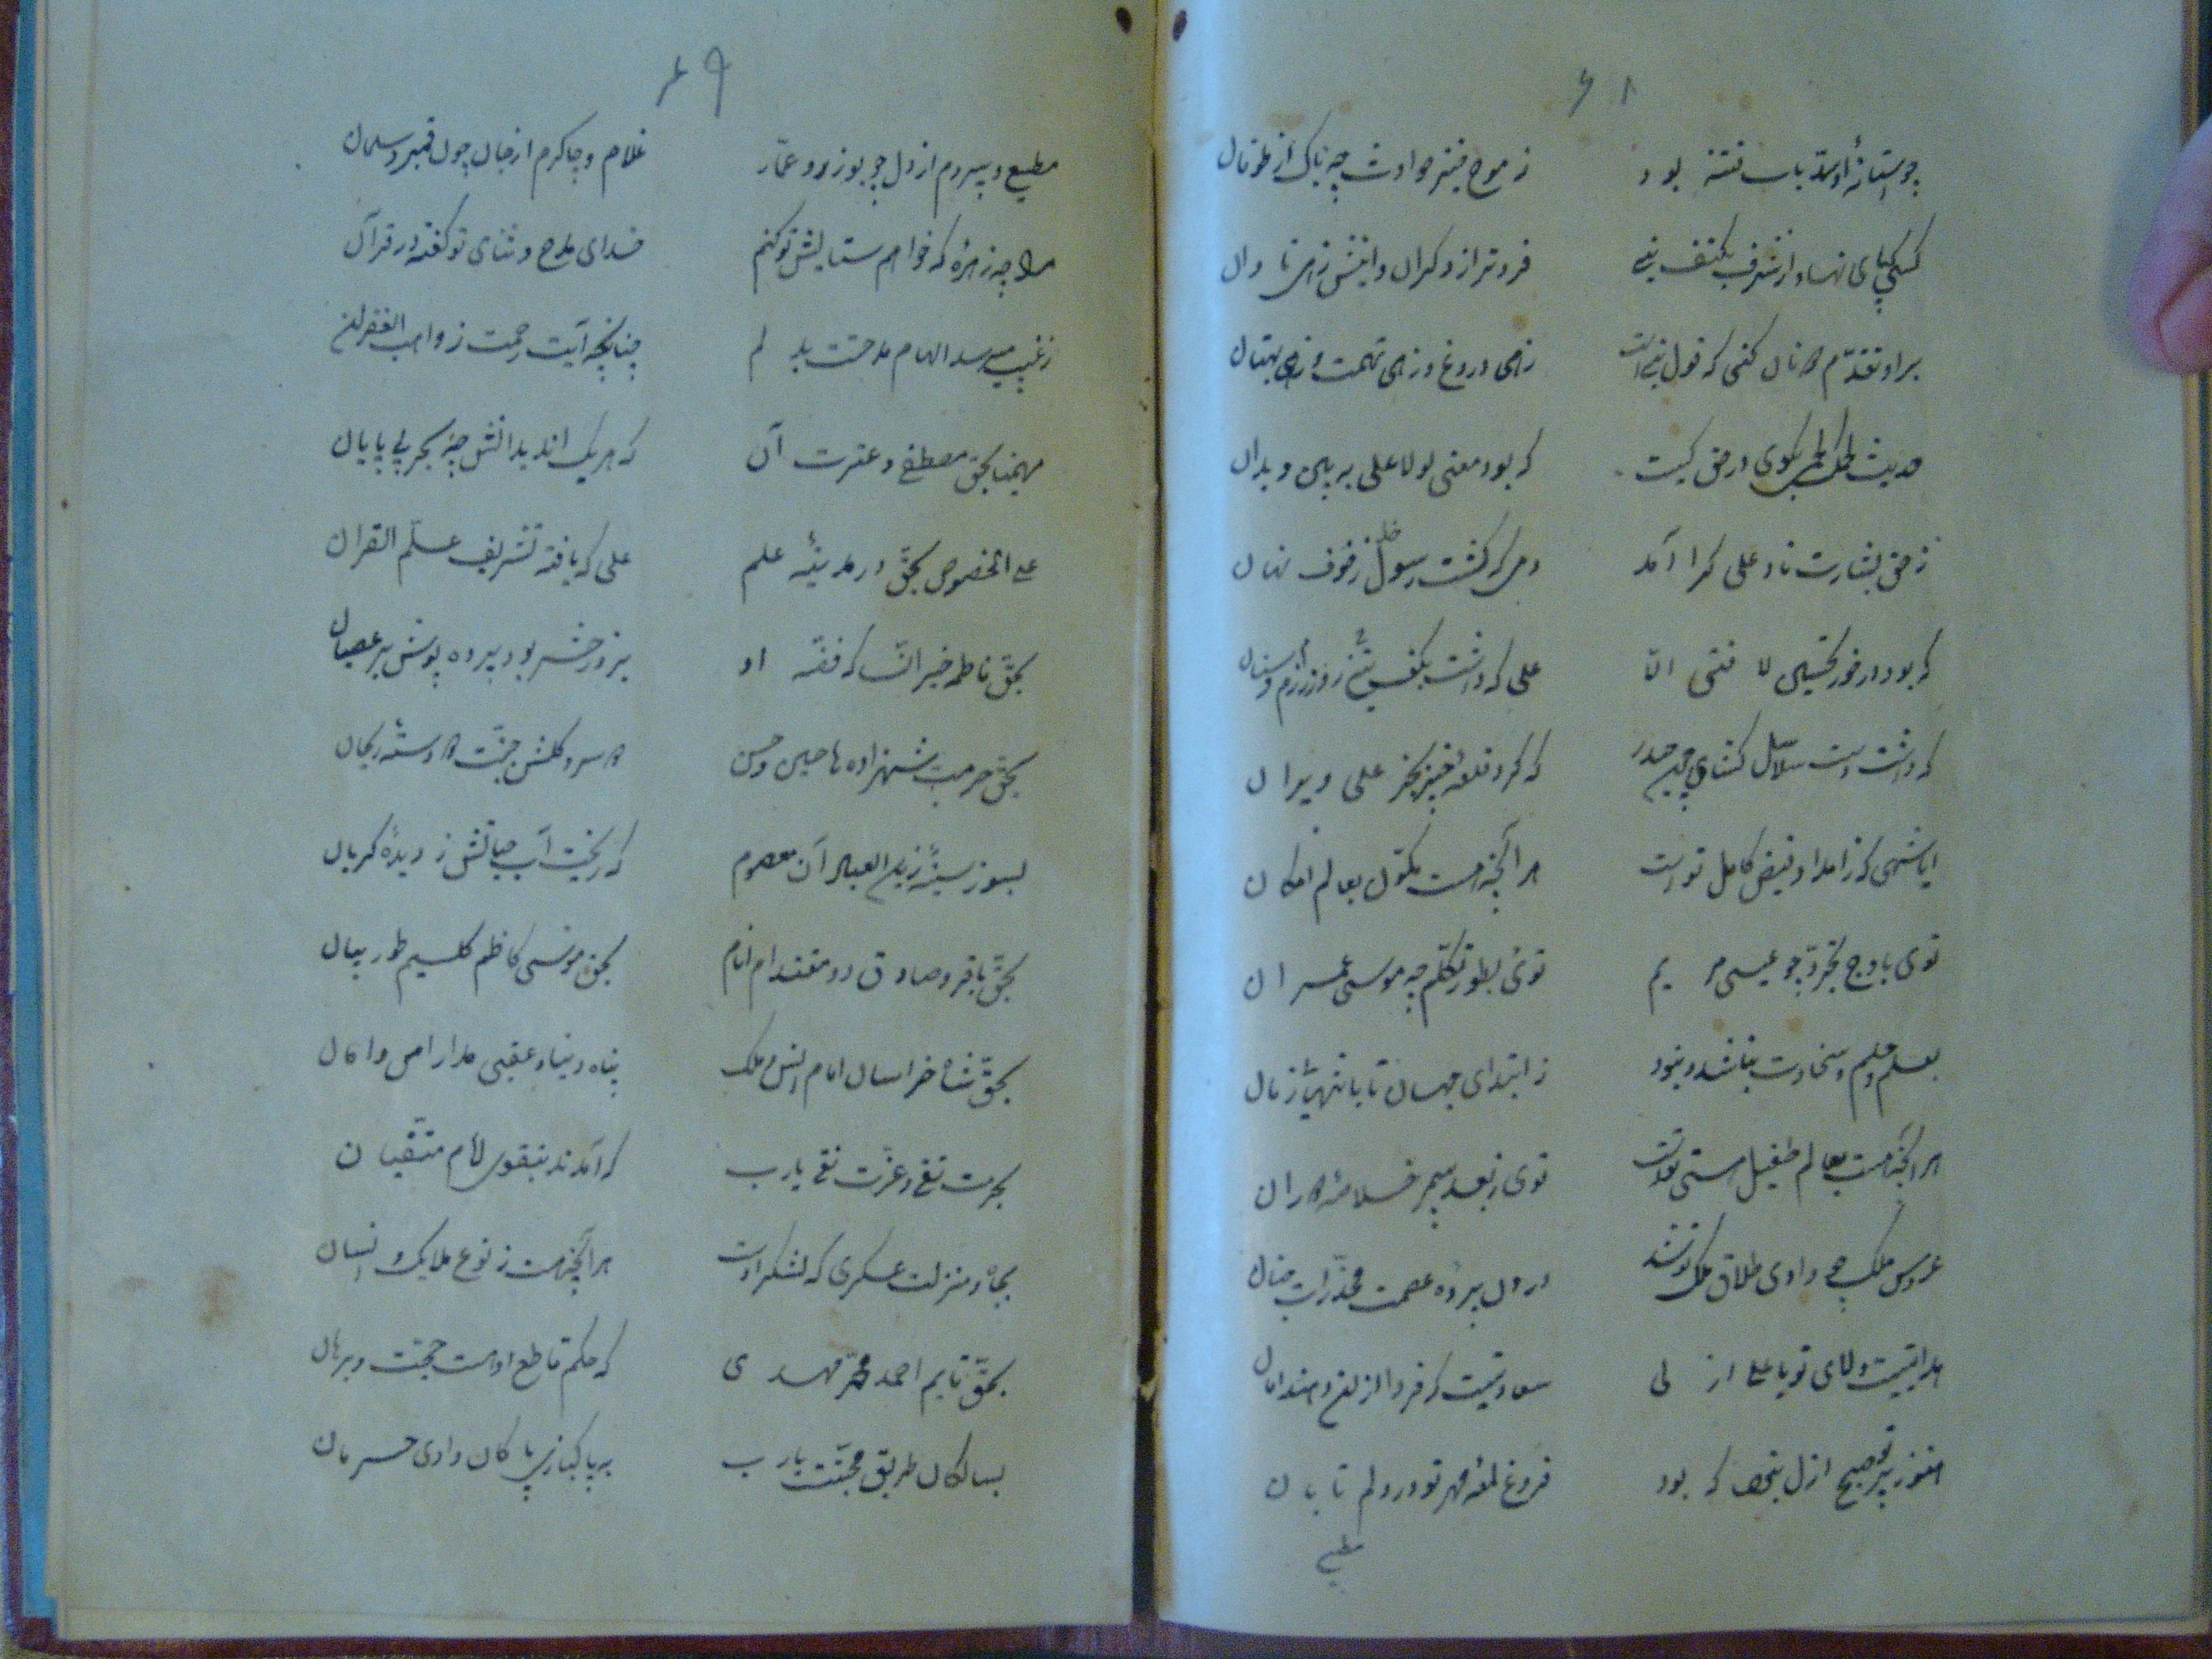 ۶۸
چو آستانهٔ او سد باب فتنه بود ز موج خیز حوادث چه باک از طوفان
کسی که پای نهاد از شرف بکتف نبی فروتر از دگران دانیش زهی تاوان
بر او تقدم آنان کنی که قول نبی است زهی دروغ و زهی تهمت و زهی بهتان
حدیث لحمک لحمی بگوی در حق کیست که بود معنی لولا علی بپرس و بدان
ز حق بشارت ناد علی کرا آمد دمی که گشت رسول خدا ز خوف نهان
که بود در خور تحسین لا فتی الا علی که داشت بکف تیغ روز رزم و سنان
که داشت دست سلاسل گشای جز حیدر که کرد قلعهٔ خیبر بجز علی ویران
ایا شهی که ز امداد فیض کامل تو است هر آنچه هست مکون بعالم امکان
توئی باوج تجرد چو عیسی مریم توئی بطور تکلم چه موسی عمران
بعلم و حلم و سخاوت نباشد و نبود ز ابتدای جهان تا بانتهای زمان
هر آنچه هست بعالم طفیل هستی تو است توئی ز نه سپهر خلاصهٔ دوران
عروس ملک چو دادی طلاق ملک تو شد درون پردهٔ عصمت مخدرات جنان
هدایتیست ولای تو یا علی ازلی سعادتیست که فردا
هنوز پرتو صبح ازل نبود که بود فروغ لمعهٔ مهر تو در دلم تابان
مطیع
۶۹
مطیع و پیروم از دل چو بوذر و عمّار غلام و چاکرم از جان چون قمبر و سلمان
مرا چه زهره که خواهم ستایش تو کنم خدای مدح و ثنای تو گفته در قرآن
ز غیب میرسد الهام مدحتت بدلم چنانچه آیت رحمت ز واهب الغفران
مهیمنا بحق مصطفی و عترت آن که هر یک اند بدانش چه بحر بی پایان
علی الخصوص بحقّ در مدینهٔ علم علی که یافته تشریف علّم القران
بحقّ فاطمه خیر النّسا که فقه او بروز حشر بود پرده پوش بر عصیان
بحقّ حرمت شهزاده ها حسین و حسن دو سرو گلشن جنّت دو دستهٔ ریحان
بسوز سینهٔ زین العباد آن معصوم که ریخت آب حیاتش ز دیدهٔ گریان
بحقّ باقر و صادق دو مقتدای انام بحق موسی کاظم کلیم طور بیان
بحقّ شاه خراسان امام انس و ملک پناه دنیا و عقبی مدار امن و امان
بحرمت تقی و عزّت نقی یارب که آمدند بتقوی امام متّقیان
بجاه و منزلت عسکری که لشکر اوست هر آنچه هست ز نوع ملایک و انسان
بحقّ قایم احمد محمّد مهدی که حکم قاطع او هست حجّت و برهان
بسالکان طریق محبّتت یارب به پاکبازی پاکان وادی حرمان